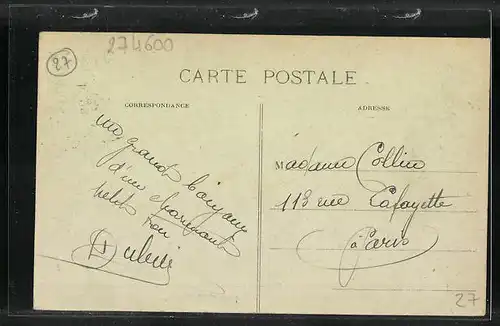 27
274600
CARTE POSTALE
CORRESPONDANCE
ADRESSE
un grand bonjour
d'un charmant
petit
Madame Collin
113 rue Lafayette
à Paris
27